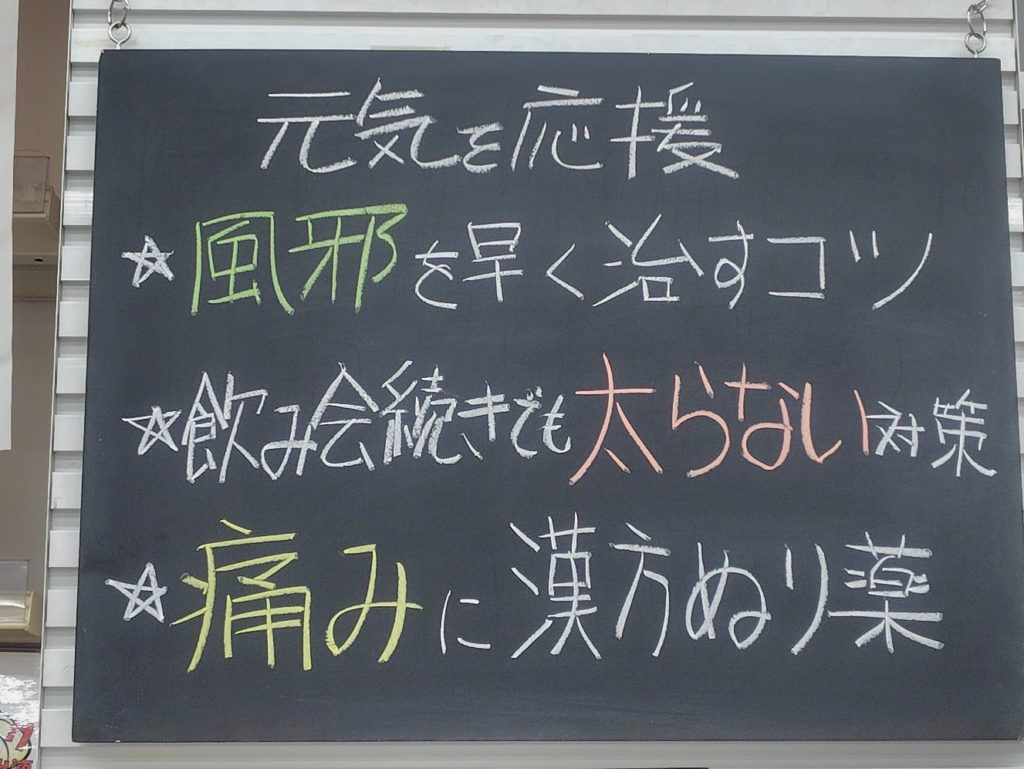 元気を応援
☆風邪を早く治すコツ
☆飲み会続きでも太らない対策
☆痛みに漢方ぬり薬